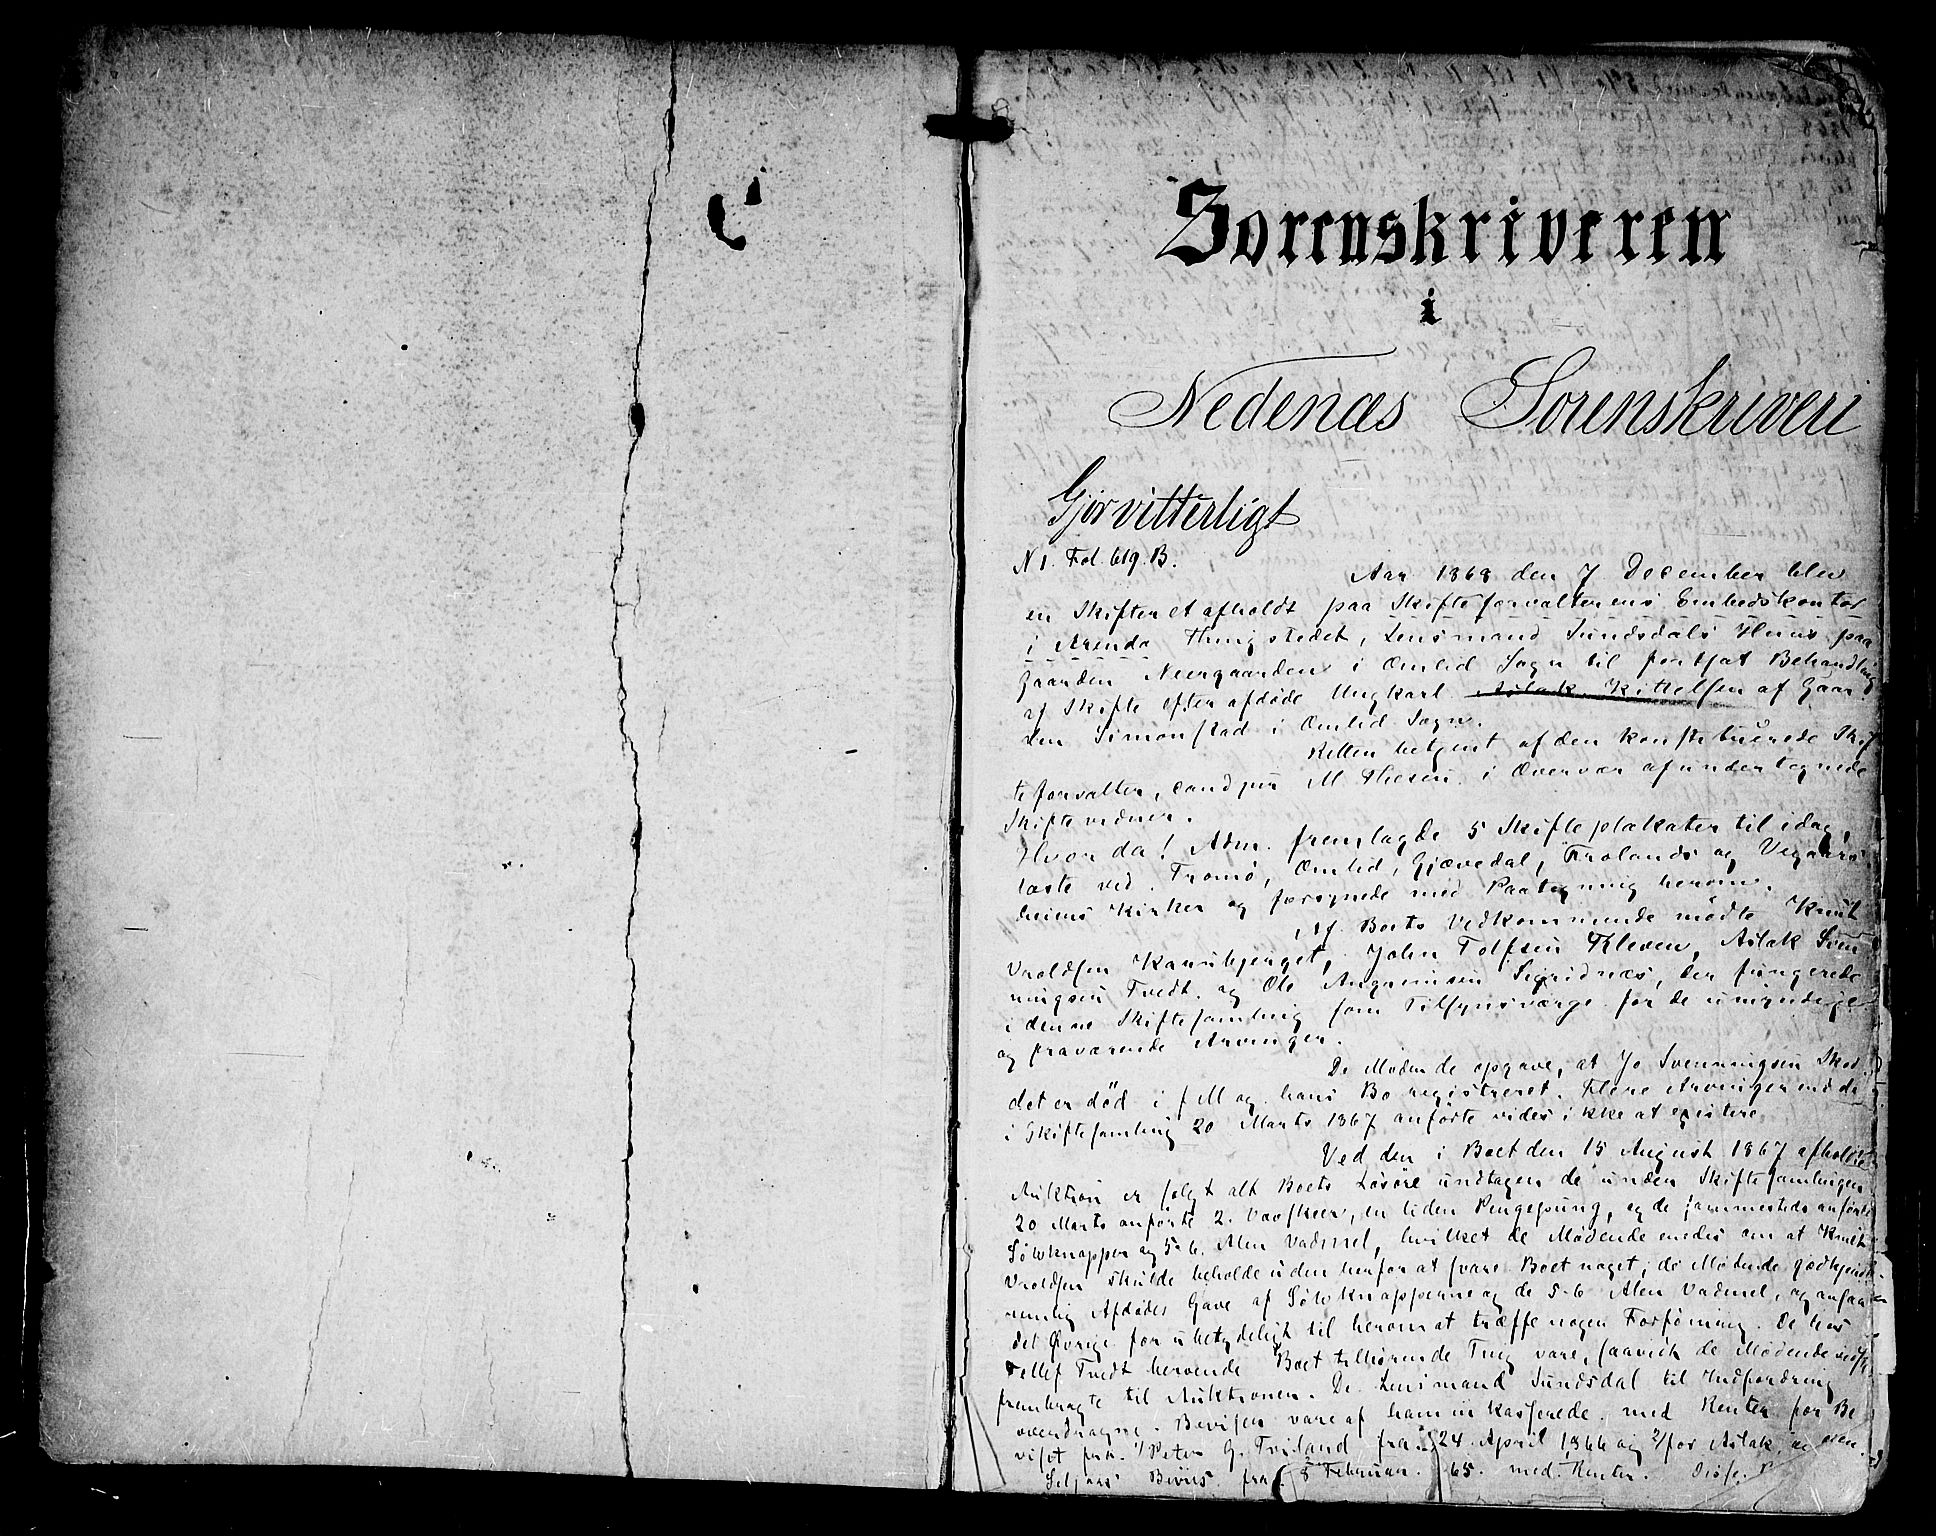 Sorenskriveren
i
Nedenæs Sorenskriveri
Gjør vitterligt
N 1. Fol. 619. B.
Aar 1868 den 7 December blev
en Skifteret afholdt paa Skifteforvalterens Embedskontor
i Arendal Thingstedet, Lensmand Sundsdals Huus paa
Gaarden Neergaarden i Omlid Sogn til fortsat Behandling
af Skifte efter afdøde Ungkarl Aslak Kittelsen af Gaar
den Simonstad i Omlid Sogn.
Retten betjent af den konstituerede Skif
teforvalter, cand jur M Thesen i Overvær af undertegnede
Skiftevidner.
Hvor da! Adm. fremlagde 5 Skifteplakater til idag,
læste ved Tromø, Omlid, Gjævedal, Frolands og Vegaars
heiens Kirker og forsynede med Paategning herom.
Af Boets Vedkommende mødte Knut
Vroldsen Kannebjerget, John Tolfsen Kleven, Aslak Sven
ningsen Tvedt og Ole Sigridnæs, der fungerede
i denne Skiftesamling som Tilsynsværge for de umyndige
og fraværende Arvinger.
De Mødende opgave, at Jo Svenningsen
det er død i f M og hans Bo registreret. Flere Arvinger end de
i Skiftesamling 20 Marts 1867 anførte vides ikke at existere.
Ved den i Boet den 15 August 1867 afholdte
Auktion er solgt alt Boets Løsøre undtagen de under Skiftesamlingen
20 Marts anførte 2 Vævskeer, en liden Pengepung, og de sammesteds anførte
Sølvknapper og 5-6 Alen Vadmel, hvilket de Mødende enedes om at Knut
Vroldsen skulde beholde uden herfor at svare Boet noget; de Mødende godkjendte
nemlig Afdødes Gave af Sølvknapperne og de 5-6 Alen Vadmel, og ansaa
det Øvrige for ubetydeligt til herom at træffe nogen Forføining. De hos
Tellef Tvedt beroende Boet tilhørende Ting vare, saavidt de Mødende vidste,
frembragte til Auktionen. De Lensmand Sundsdal til Indfordring
overdragne Beviser vare af ham inkasserede med Renter for Be
viset fra 1/ Peter G. Tveland fra 24 April 1866 og 2/ for Aslak
Seljaas Bevis fra 8 Februar 65 med Renter.